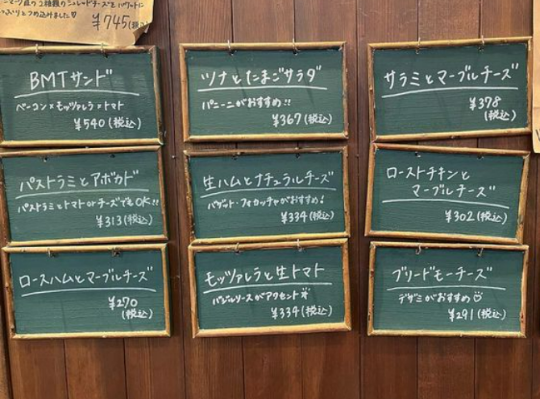 ーズを バゲットに
ぷりとつめ込みました
¥745(税込)
BMTサンド
ベーコン×モッツァレラ×トマト
¥540(税込)
パストラミとアボカド
パストラミとトマトorチーズでもOK!!
¥313(税込)
ロースハムとマーブルチーズ
¥270
(税込)
ツナとたまごサラダ
パニーニがおすすめ!!
¥367(税込)
生ハムとナチュラルチーズ
バゲット・フォカッチャがおすすめ!
¥334(税込)
モッツァレラと生トマト
バジルソースがアクセント
¥334(税込)
サラミとマーブルチーズ
¥378
(税込)
ローストチキンと
マーブルチーズ
¥302(税込)
ブリードモーチーズ
デザミがおすすめ
¥291(税込)